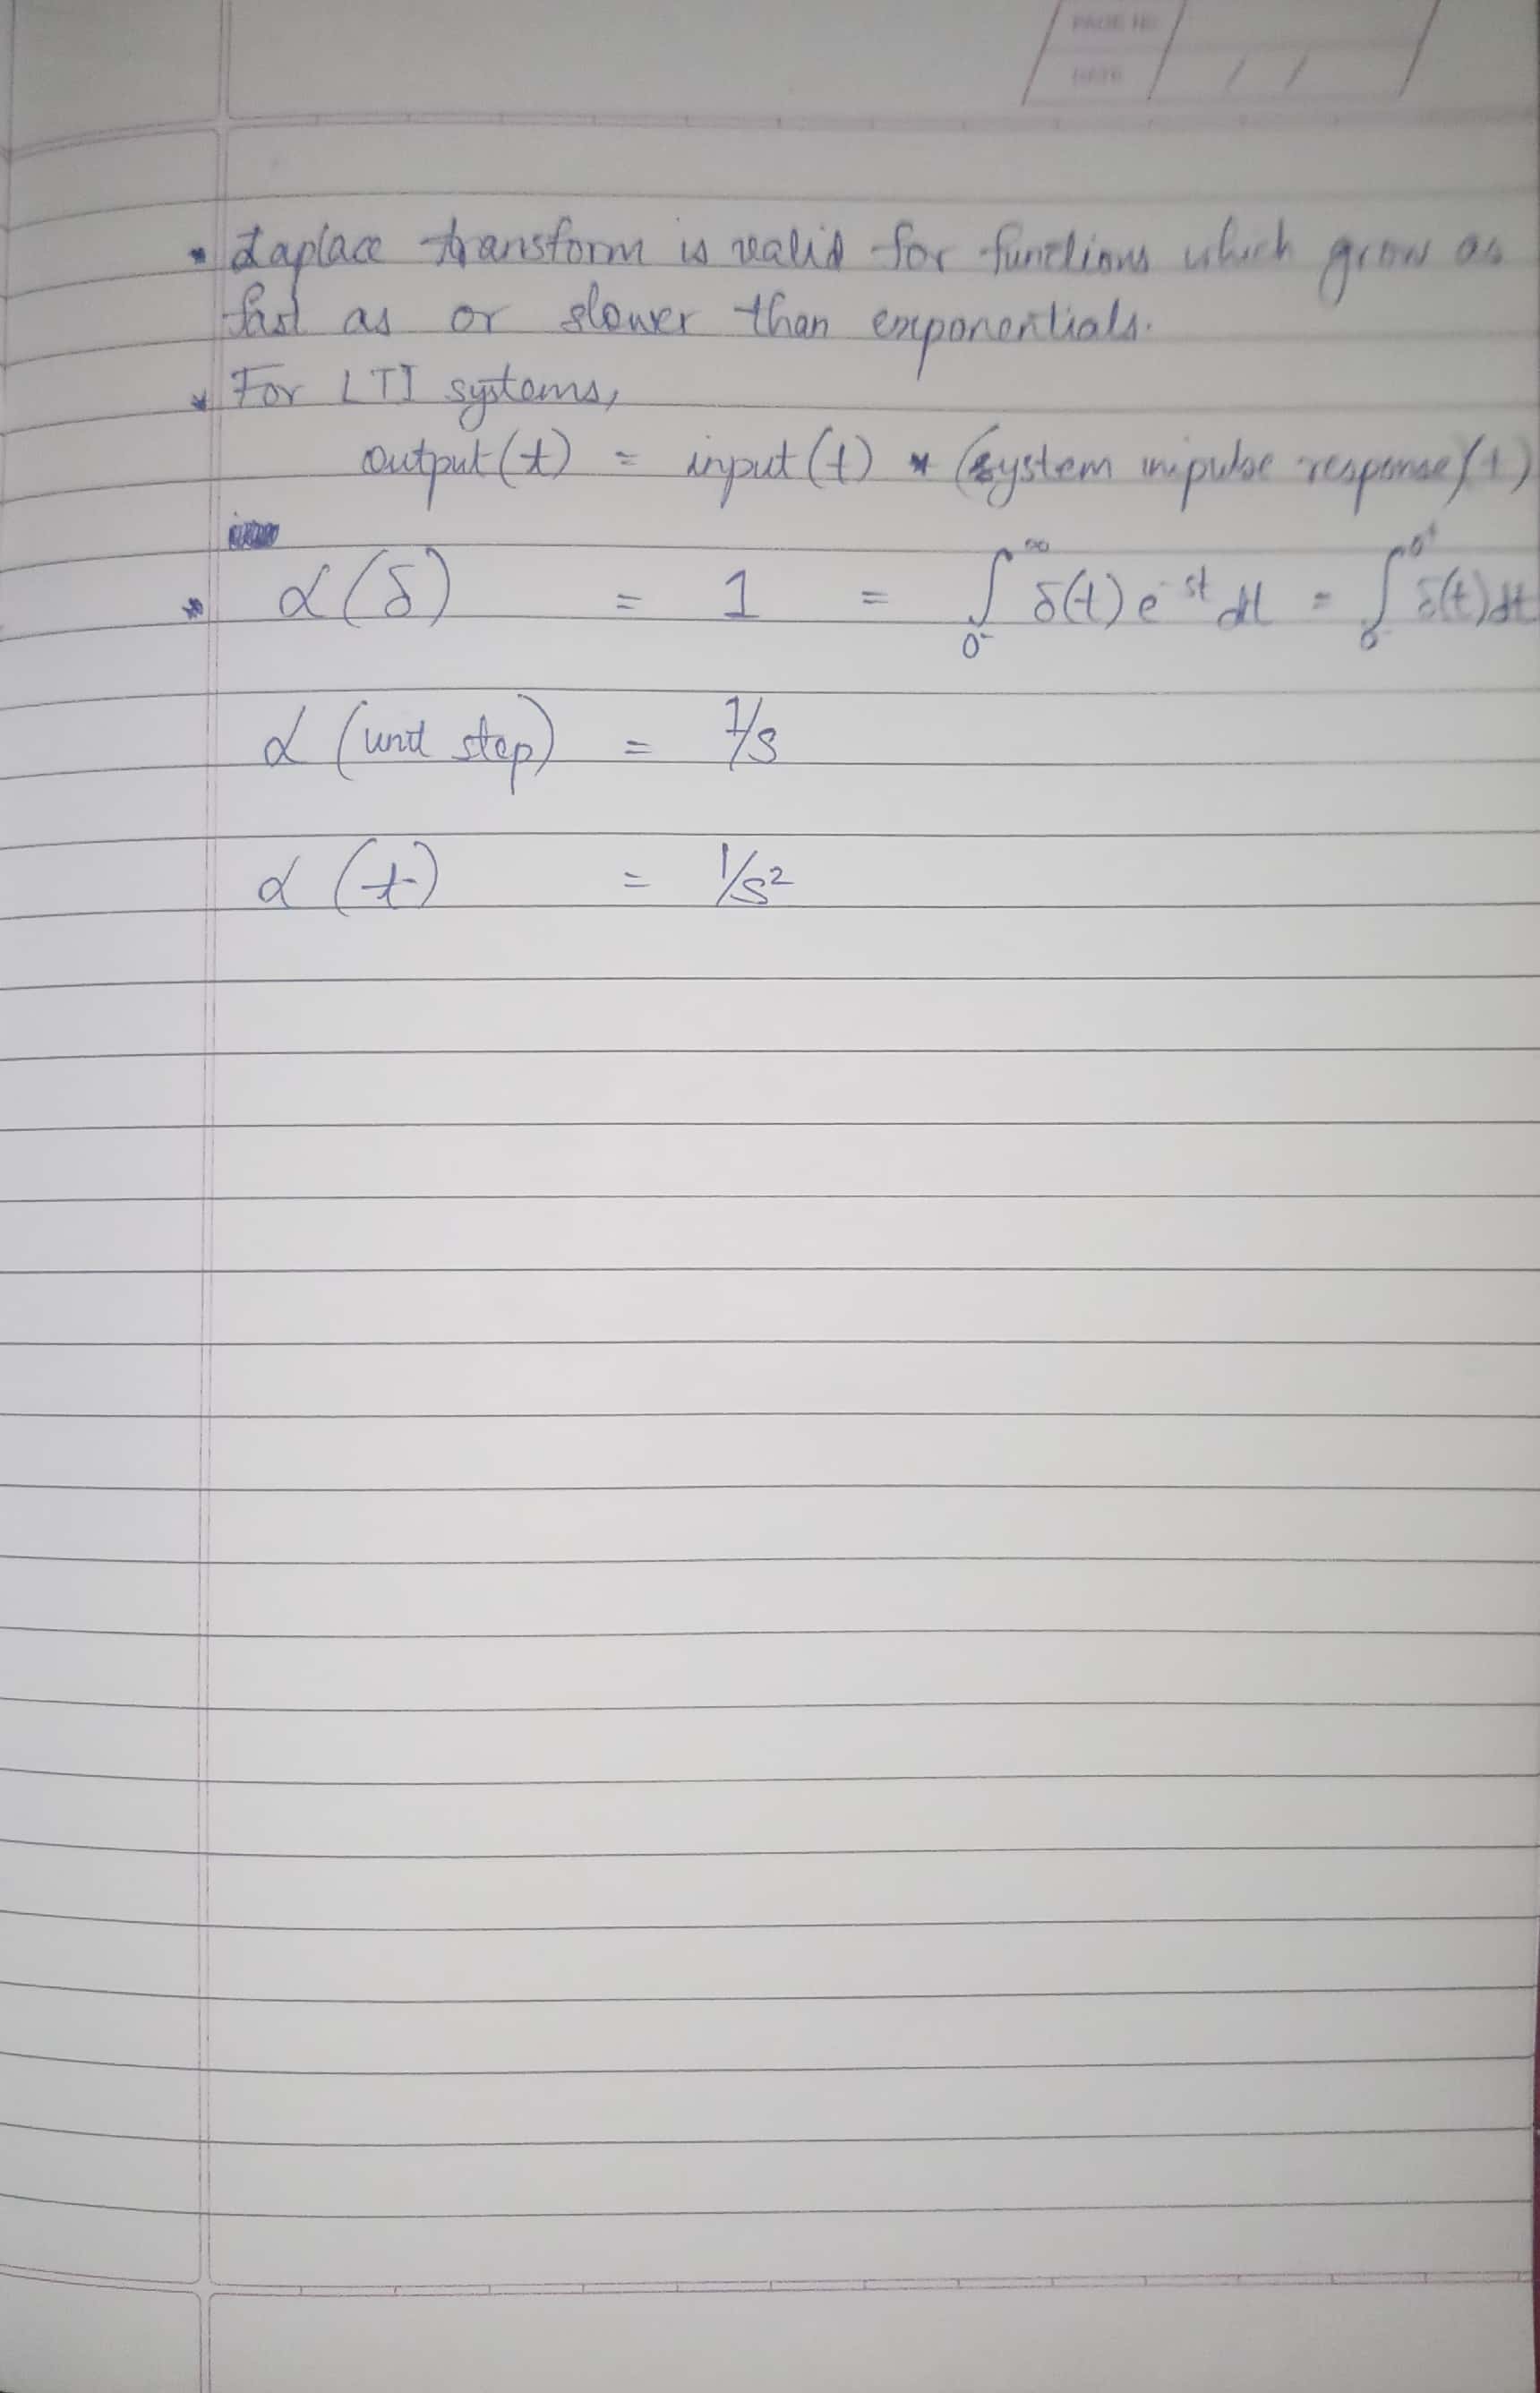 PAGE NO
DATE / /
* Laplace transform is valid for functions which grow as
fast as or slower than exponentials.
* For LTI systems,
output(t) = input(t) * (system impulse response)(t)
* L(δ) = 1 = ∫₀-^∞ δ(t)e^-st dt = ∫₀-^0⁺ δ(t)dt
L (unit step) = 1/s
L (t) = 1/s²